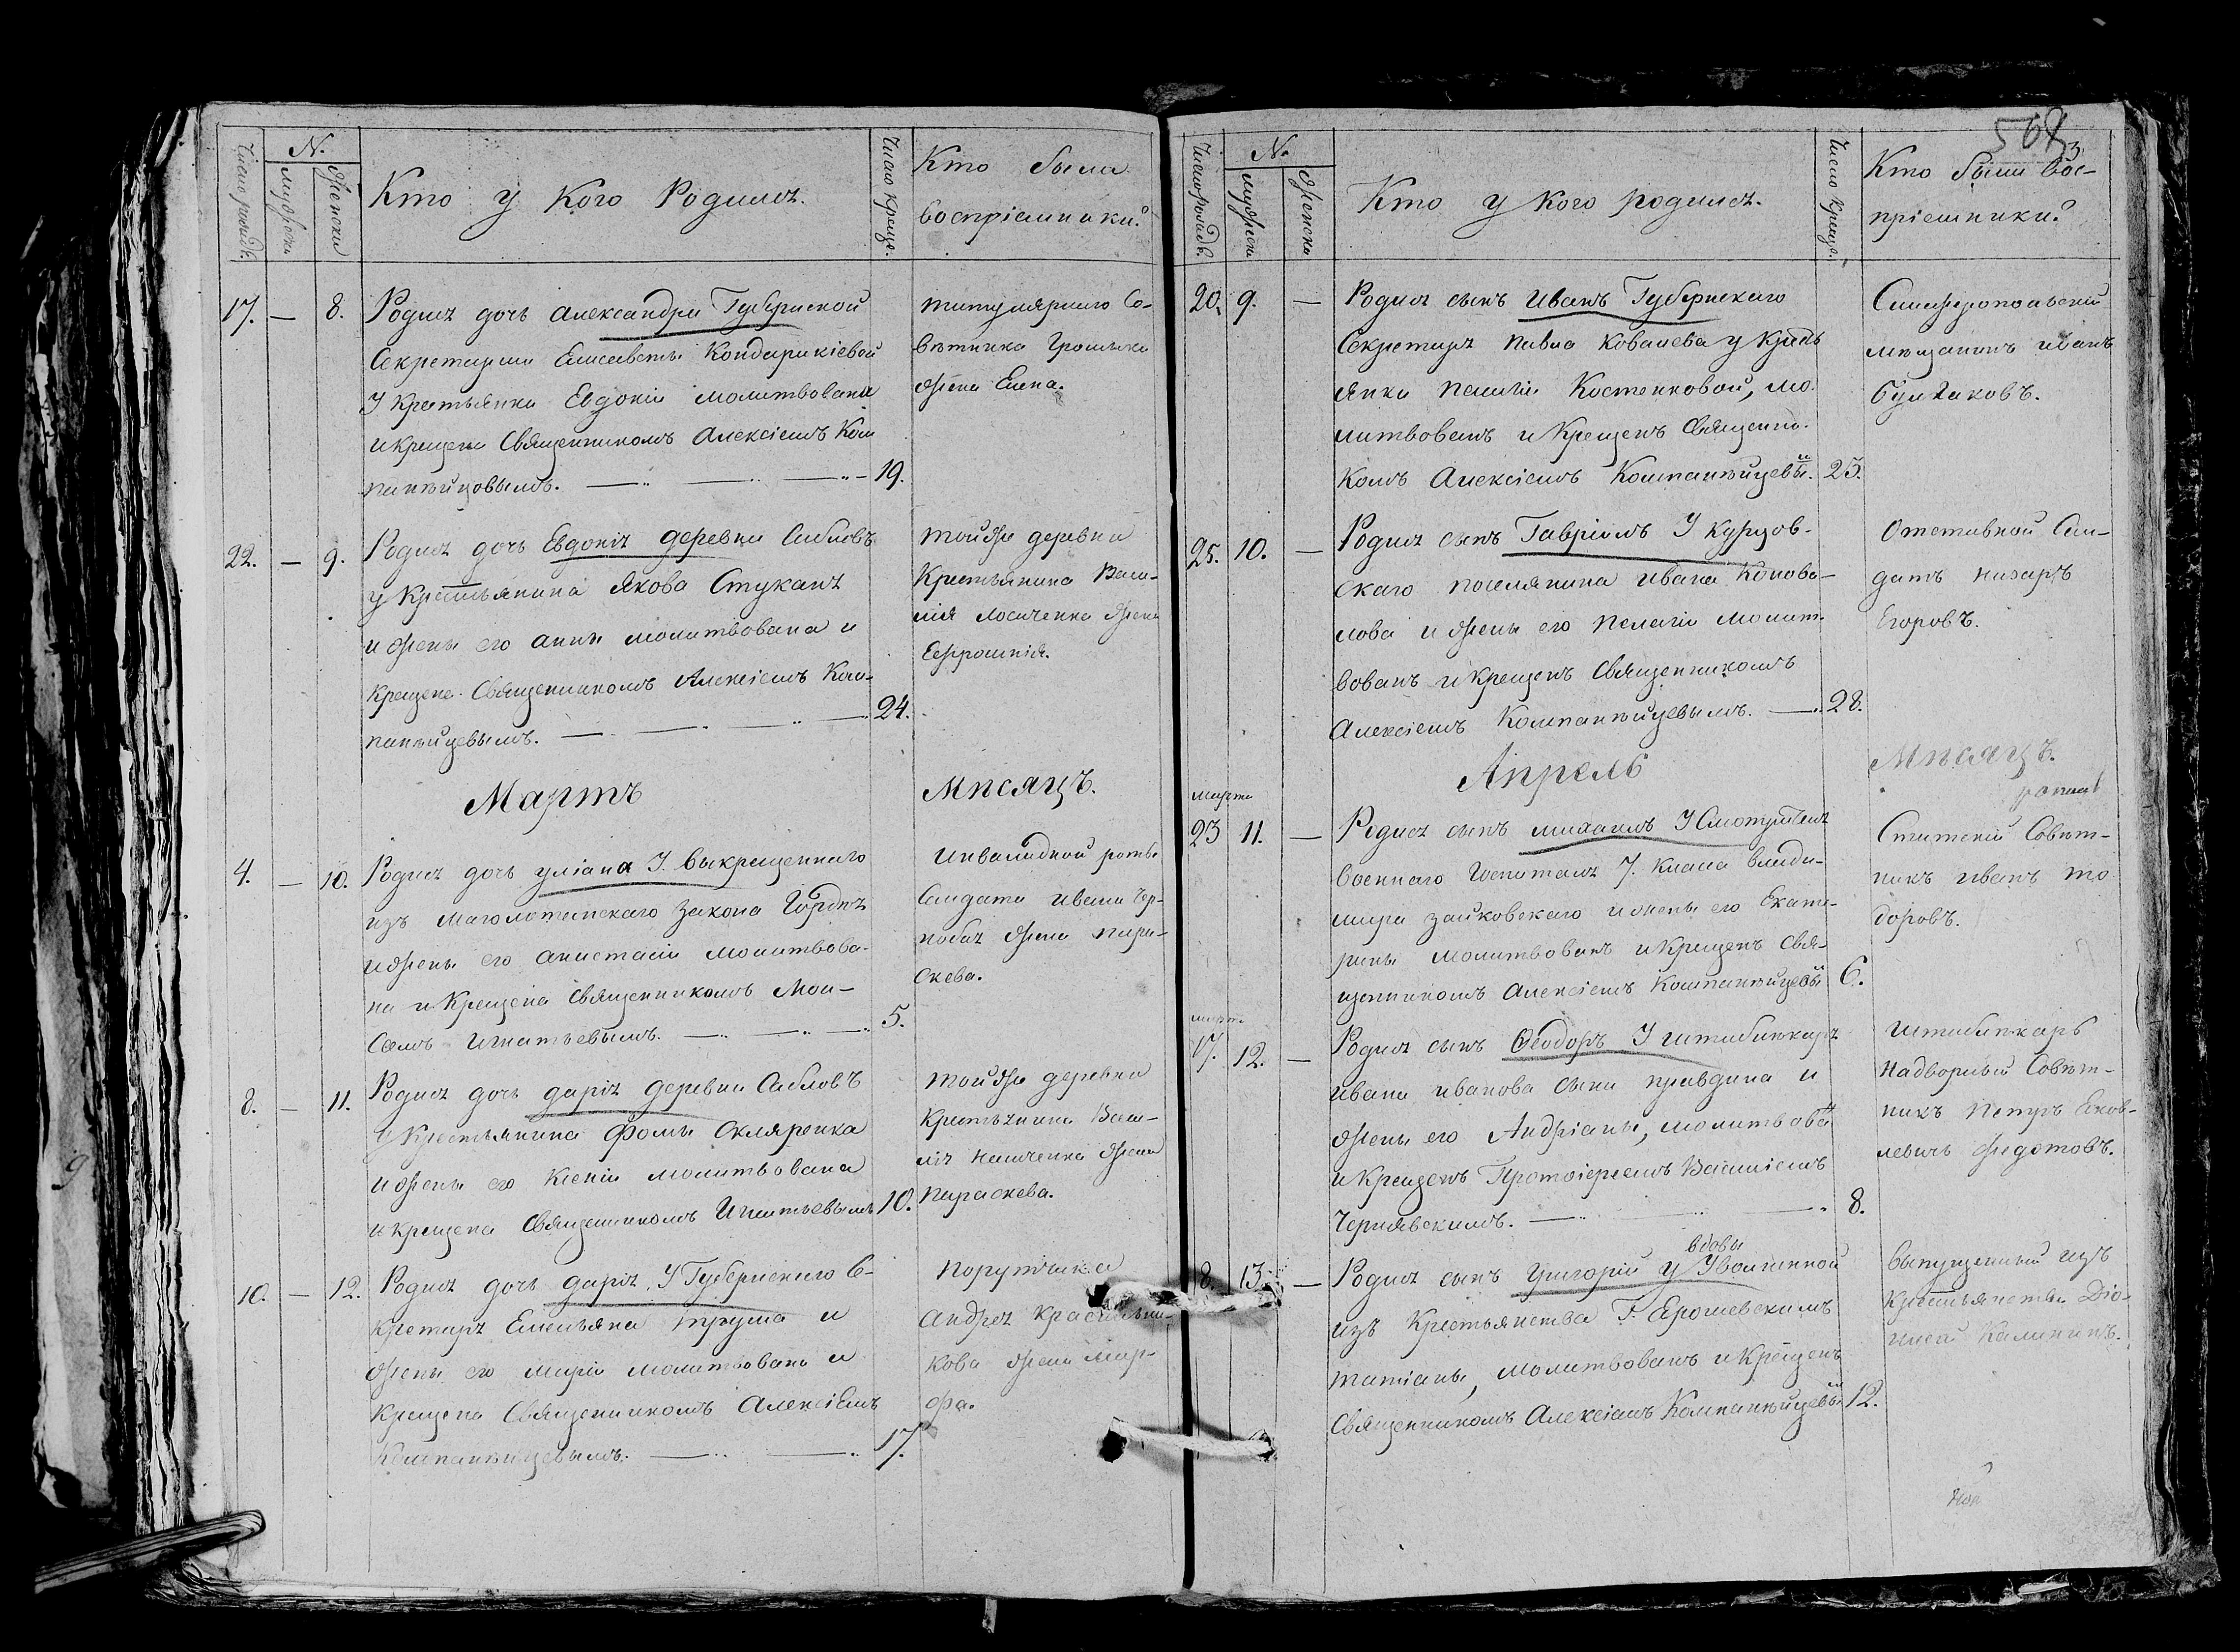 Число рожде.
N.
мужески
женски
Кто у кого Родился.
Число креще.
Кто были
воспріемники?
17. — 8. Родилась дочь Александра Губернской
Секретарши Елисаветы Кондаракіевой
У крестьянки Евдокіи молитвована
и крещена Священникомъ Алексіемъ Ком
панейцовымъ. — 19.
титулярнаго Со-
вѣтника
жена Елена.
22. — 9. Родилась дочь Евдокія деревни Сабловъ
у крестьянина Якова Стукаля
и жены его анны молитвована и
крещена Священникомъ Алексіемъ Ком-
панѣйцевымъ. — 24.
тойже деревни
крестьянина Васи-
лія жена
Ефросинія.
Мартъ Мѣсяцъ.
4. — 10. Родилась дочь уліана У. выкрещеннаго
изъ Маголотанскаго закона
и жены его анастасіи молитвова-
на и крещена священникомъ Мои-
сеемъ Игнатьевымъ. — 5.
Инвалидной роты
Солдата Ивана
жена пара-
скева.
8. — 11. Родилась дочь дарія деревни Сабловъ
У крестьянина Фомы Скляренка
и жены его Ксеніи молитвована
и крещена Священникомъ Игнатьевымъ 10.
тойже деревни
крестьянина Васи-
лія жена
параскева.
10. — 12. Родилась дочь дарія, У Губернскаго Се-
кретаря Емельяна и
жены его маріи молитвована и
крещена Священникомъ Алексіемъ
Компанѣйцевымъ. — 17.
порутчика
андрея Красильни-
кова жена мар-
фа.
568
3
Число рожде.
N.
мужески
женски
Кто у кого родился.
Число креще.
Кто были вос-
пріемники?
20. 9. — Родился сынъ Иванъ Губернскаго
Секретаря Павла Ковалева у крѣсть
янки пелагіи Костенковой, мо-
литвованъ и крещенъ Священни-
комъ Алексіемъ Компанѣйцевымъ. 25.
Симферопольскій
мѣщанинъ иванъ
Булгаковъ.
25. 10. — Родился сынъ Гавріилъ У курцов-
скаго поселянина ивана Конова-
лова и жены его пелагіи молит-
вованъ и крещенъ Священникомъ
Алексіемъ Компанѣйцевымъ. — 28.
Отставной Сол-
датъ назаръ
Егоровъ.
Апрель Мѣсяцъ.
марта
23 11. — Родился сынъ михаилъ У Смотрителя
военнаго Госпиталя 7. класса влади-
мира зайковскаго и жены его Екате-
рины молитвованъ и крещенъ Свя-
щенникомъ Алексіемъ Компанѣйцевымъ 6.
Статскій Совѣт-
никъ иванъ то
доровъ.
марта
17. 12. — Родился сынъ Феодоръ У штабълекаря
ивана иванова сына правдина и
жены его Андріаны, молитвованъ
и крещенъ Протоіереемъ Василіемъ
Чернявскимъ. — 8.
Штабълекарь
Надворный Совѣт-
никъ Петръ Яков-
левичь Федотовъ.
8. 13. — Родился сынъ Григорій у вдовы Уволинной
изъ Крестьянства Г. Ерошевскимъ
татіаны, молитвованъ и крещенъ
Священникомъ Алексіемъ Компанѣйцевымъ 12.
выпущенный изъ
крестьянства Діо-
нисій Калининъ.